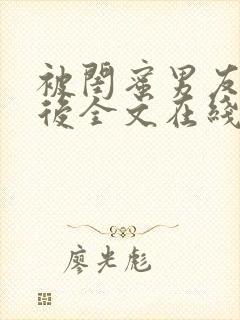 被閨蜜男友
後全文在綫
廖光彪